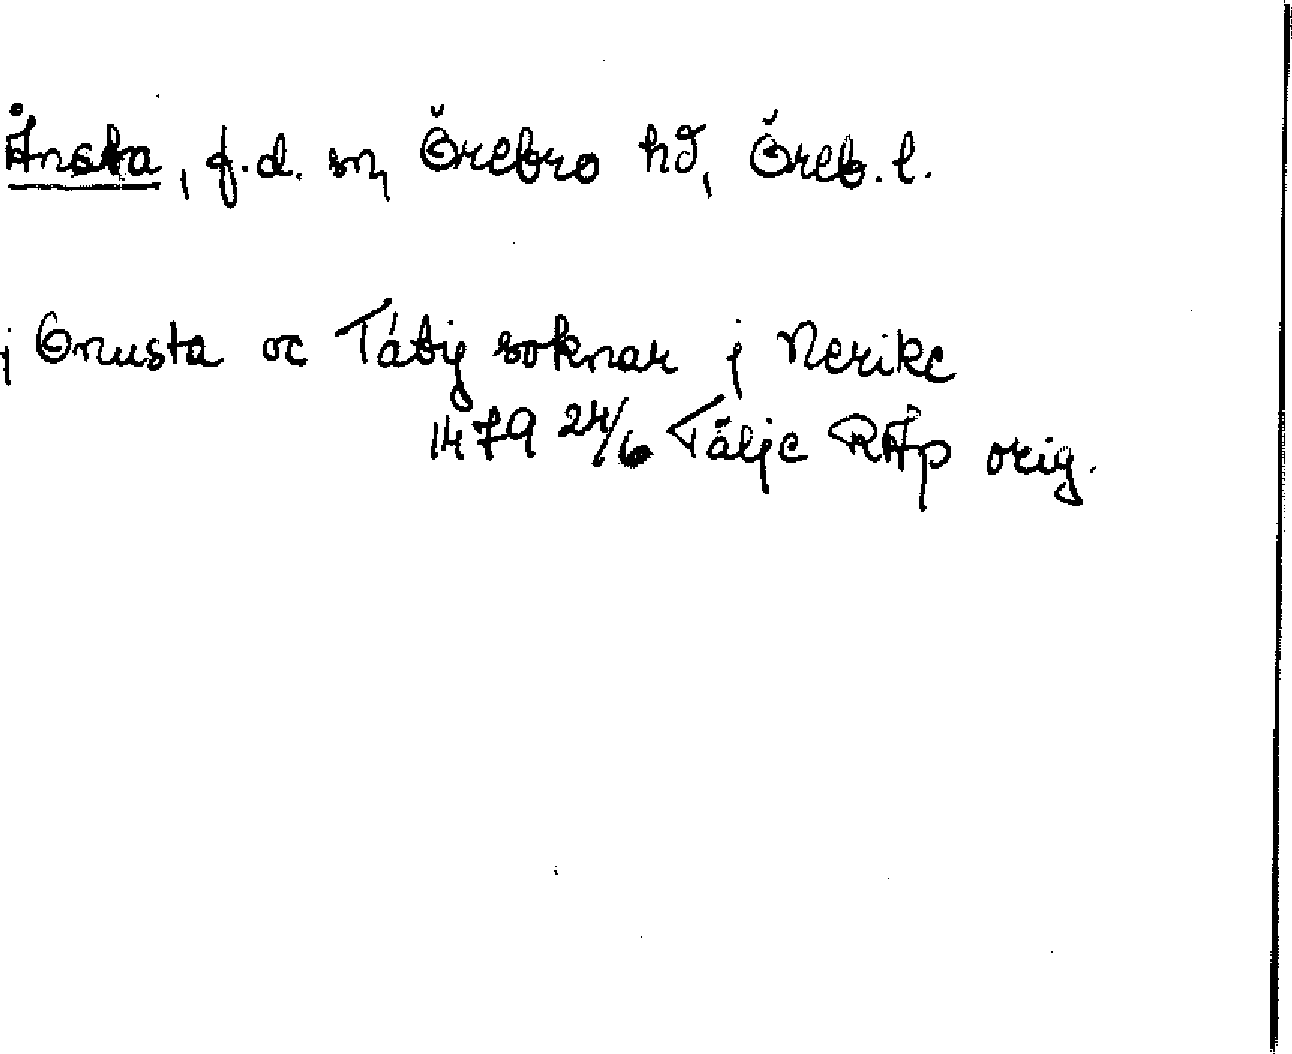 Ånsta, f.d. sn, Örebro hd, Öreb. l.
j Onusta oc Tåby soknar j Nerike
1479 24/6 Tälje RAp orig.